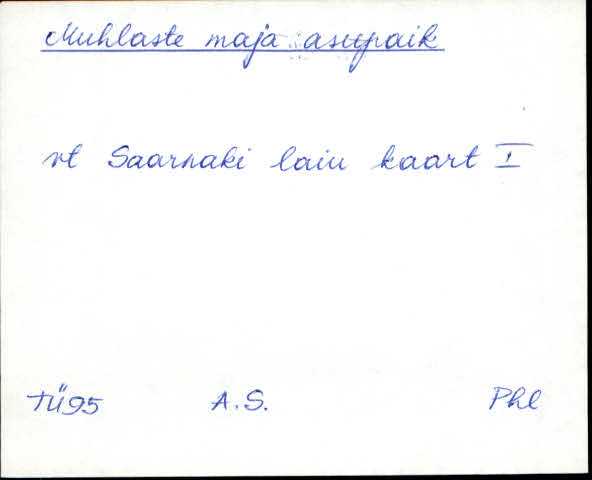 Muhlaste maja asupaik
vt Saarnaki laiu kaart I
TÜ95 A.S. Phl